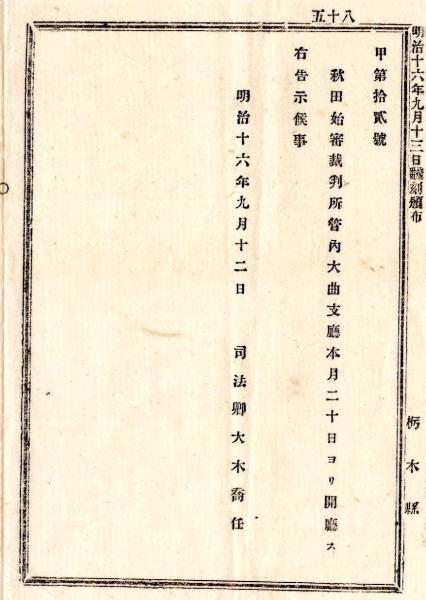 五十八
明治十六年九月十三日飜刻頒布
栃木縣
甲第拾貳號
秋田始審裁判所管內大曲支廳本月二十日ヨリ開廳ス
右吿示候事
明治十六年九月十二日 司法卿大木喬任